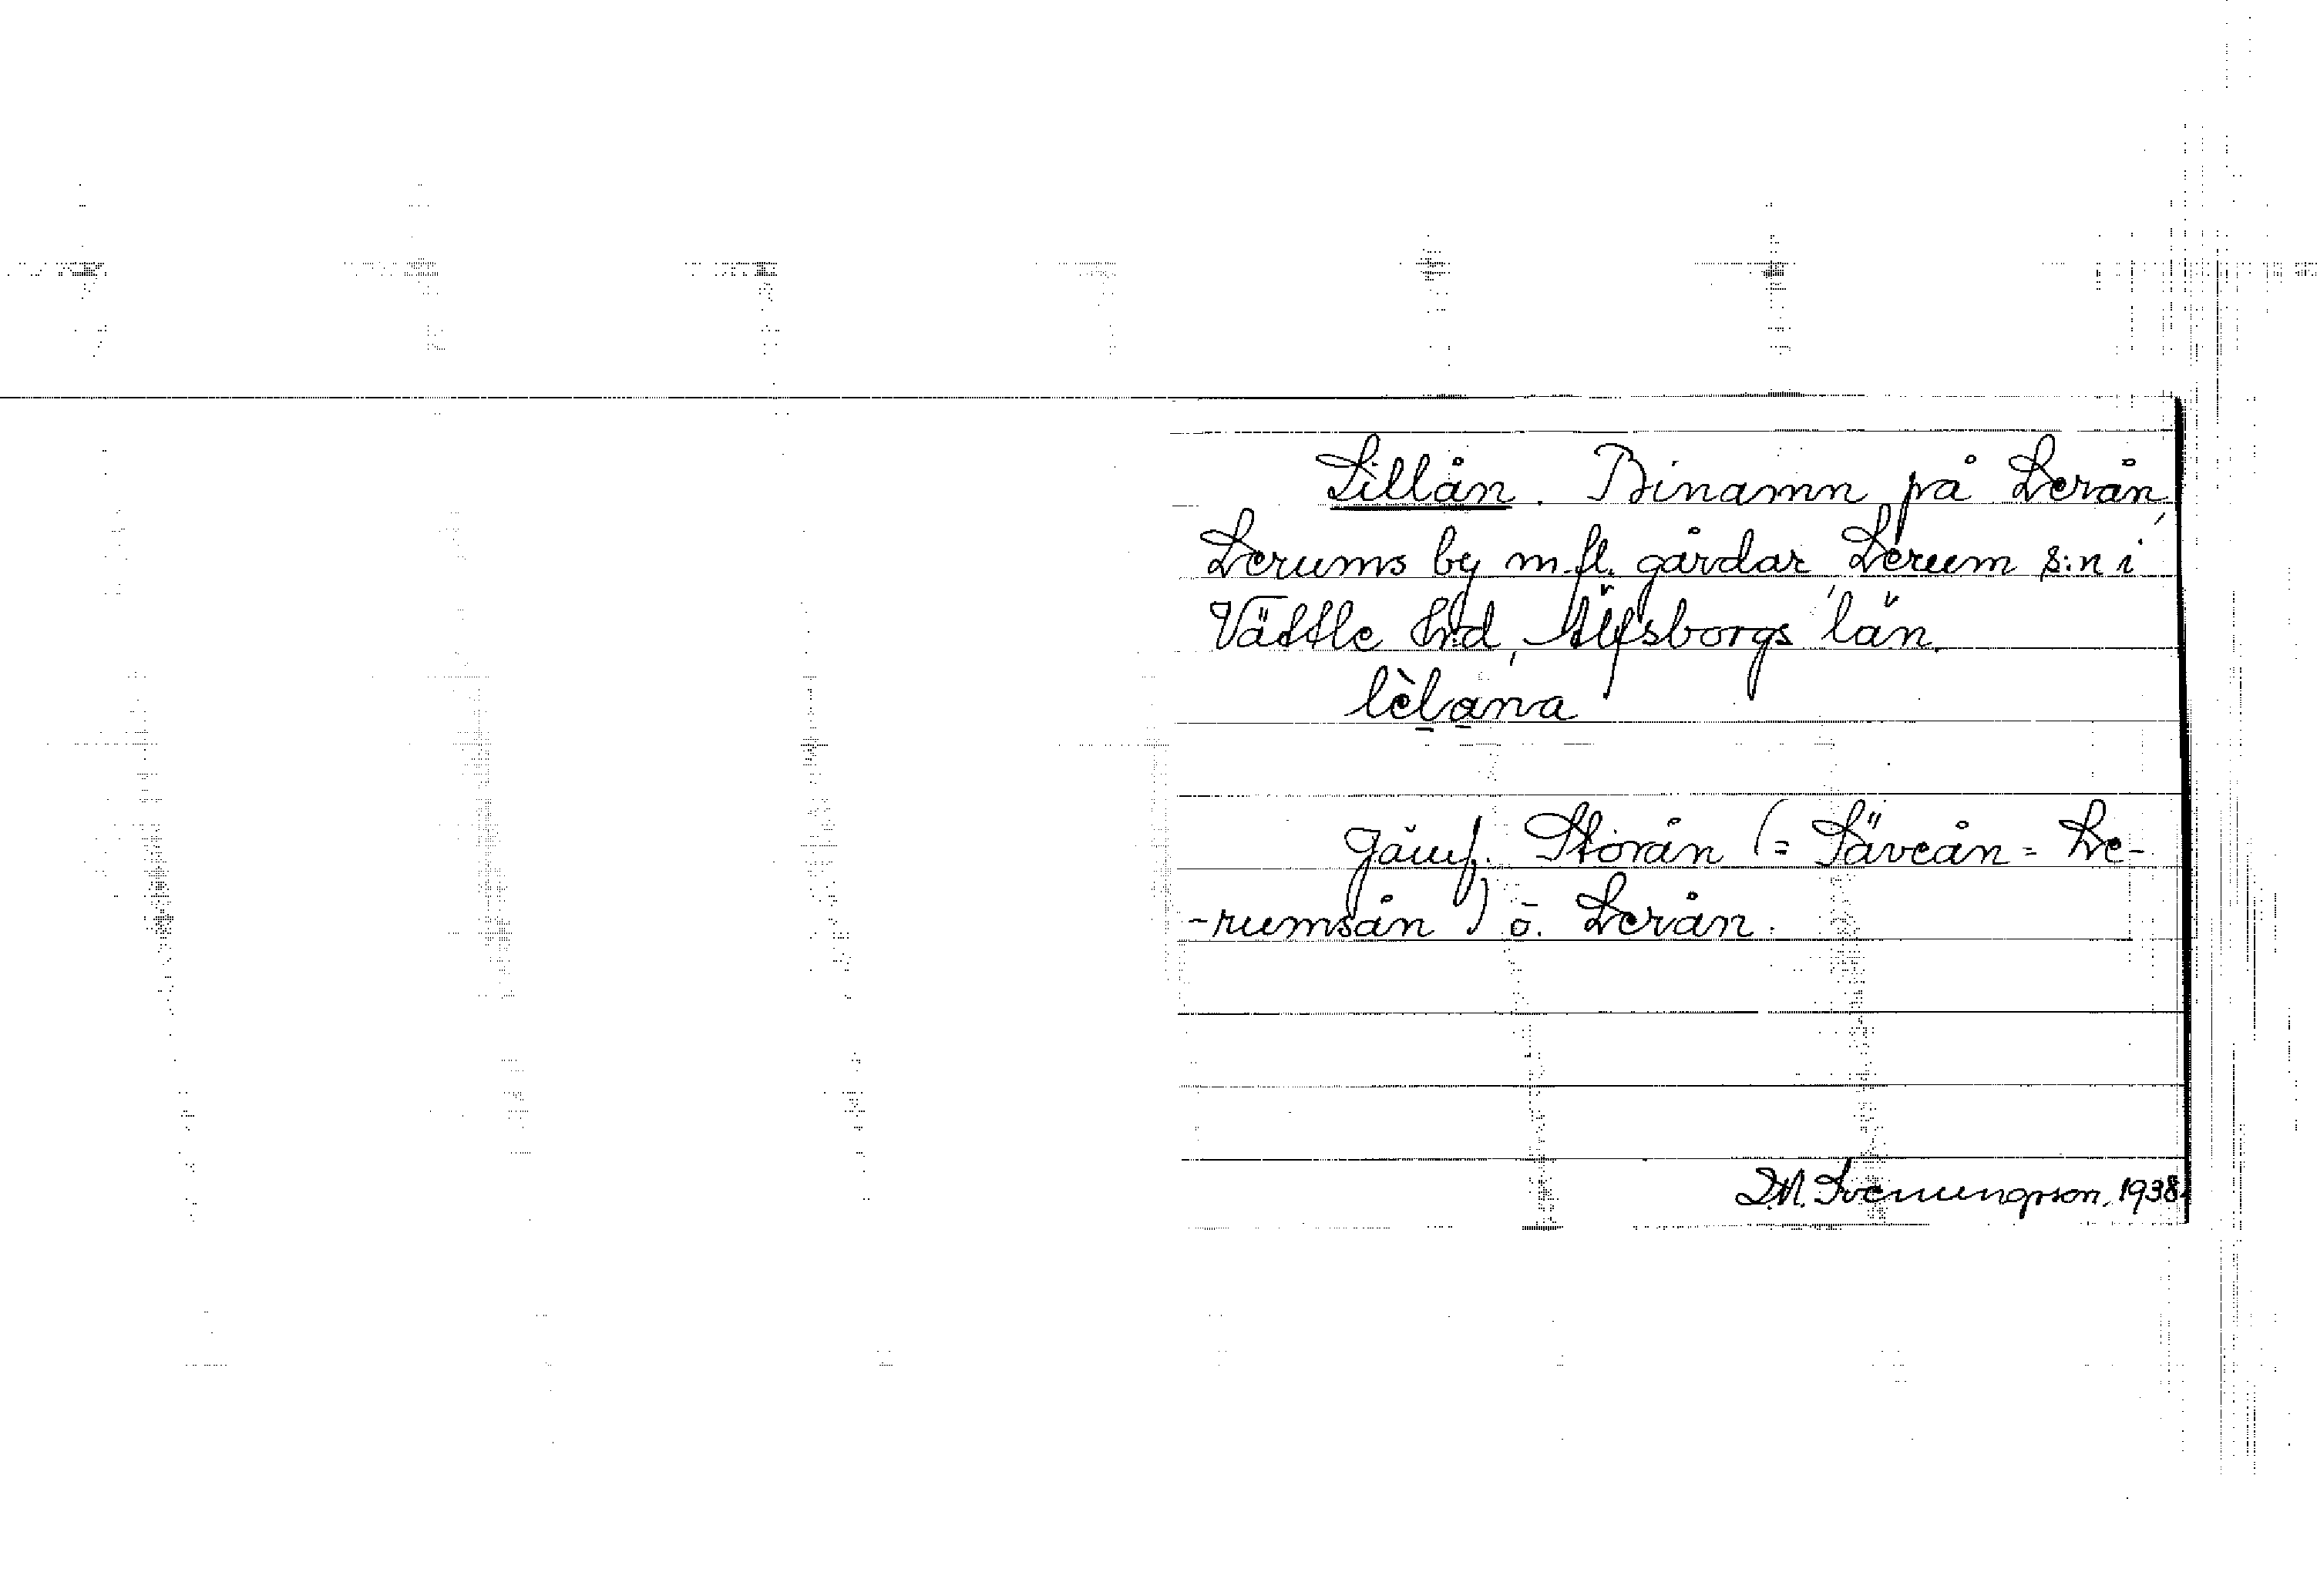 Lillån. Binamn på Lerån,
Lerums by m.fl. gårdar, Lerum s:n i
Vättle hrd, Älfsborgs län.
lèlana
Jämf. Storån (= Säveån = Le-
-rumsån) o. Lerån.
D.M. Svenungsson, 1938.